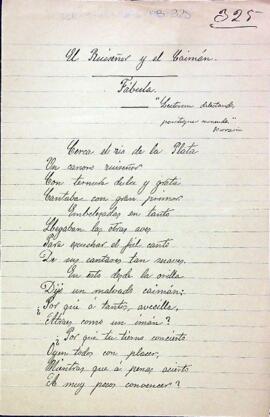 325
El Ruiseñor y el Caimán.
Fábula.
"Lectorem delectando
pariterque monendo"
Horacio
Cerca el río de la Plata
Un canoro ruiseñor
Con ternura dulce y grata
Cantaba con gran primor.
Embelesadas en tanto
Llegaban las otras aves
Para escuchar el fiel canto
De sus cantares tan suaves.
En esto desde la orilla
Dijo un malvado caimán:
¿Por qué á tantos, avecilla,
Atraes como un imán?
¿Por que tu tierno concierto
Oyen todos con placer,
Mientras que á penas acierto
A muy pocos convencer?